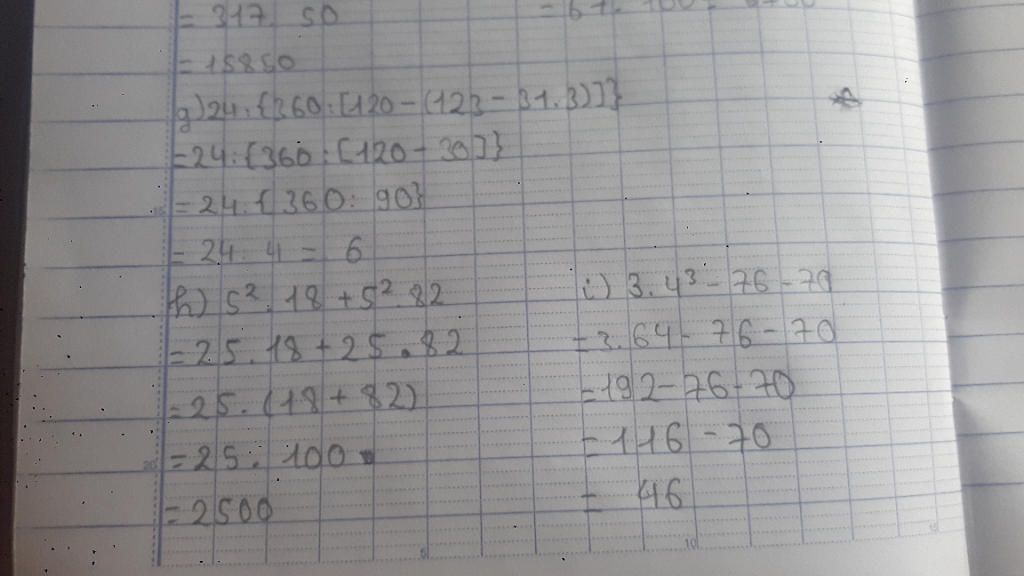 = 317. 50
= 15850
g) 24:{360:[120-(123-31.3)]}
=24:{360:[120-30]}
=24:{360: 90}
= 24: 4 = 6
h) 5². 18 + 5². 82
=25.18+25.82
=25.(18+82)
=25. 100
=2500
i) 3.4³ - 76 - 70
=3.64 - 76 - 70
=192-76-70
=116-70
= 46